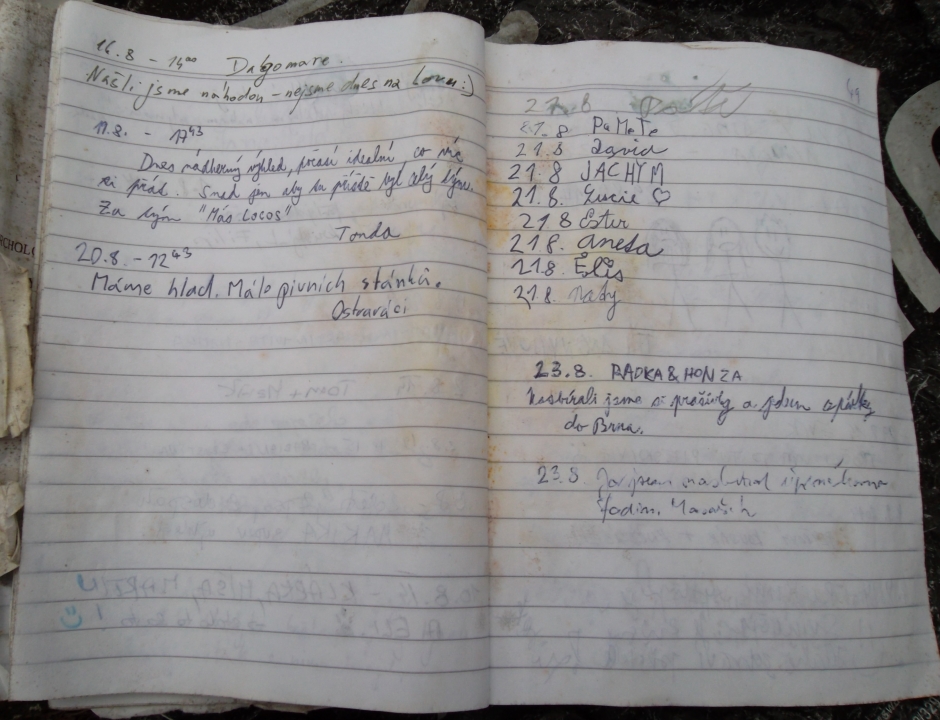 16.8 - 14⁰⁰ Dalgomare.
Našli jsme náhodou - nejsme dnes na lovu :)
17.8. - 17⁴³
Dnes nádherný výhled, počasí idealní co víc
si přát. Snad jen aby tu příště byl celý tým.
Za tým "Más Locos"
Tonda
20.8. - 12⁴³
Máme hlad. Málo pivních stánků.
Ostraváci
49
21.8
21.8 PaMeTe
21.8 David
21.8 JACHYM
21.8. Lucie ♡
21.8 Ester
21.8. aneta
21.8. Elis
21.8. Naty
23.8. RADKA & HONZA
Nasbírali jsme si pražinky a jdem zpátky
do Brna.
23.8. Já jsem